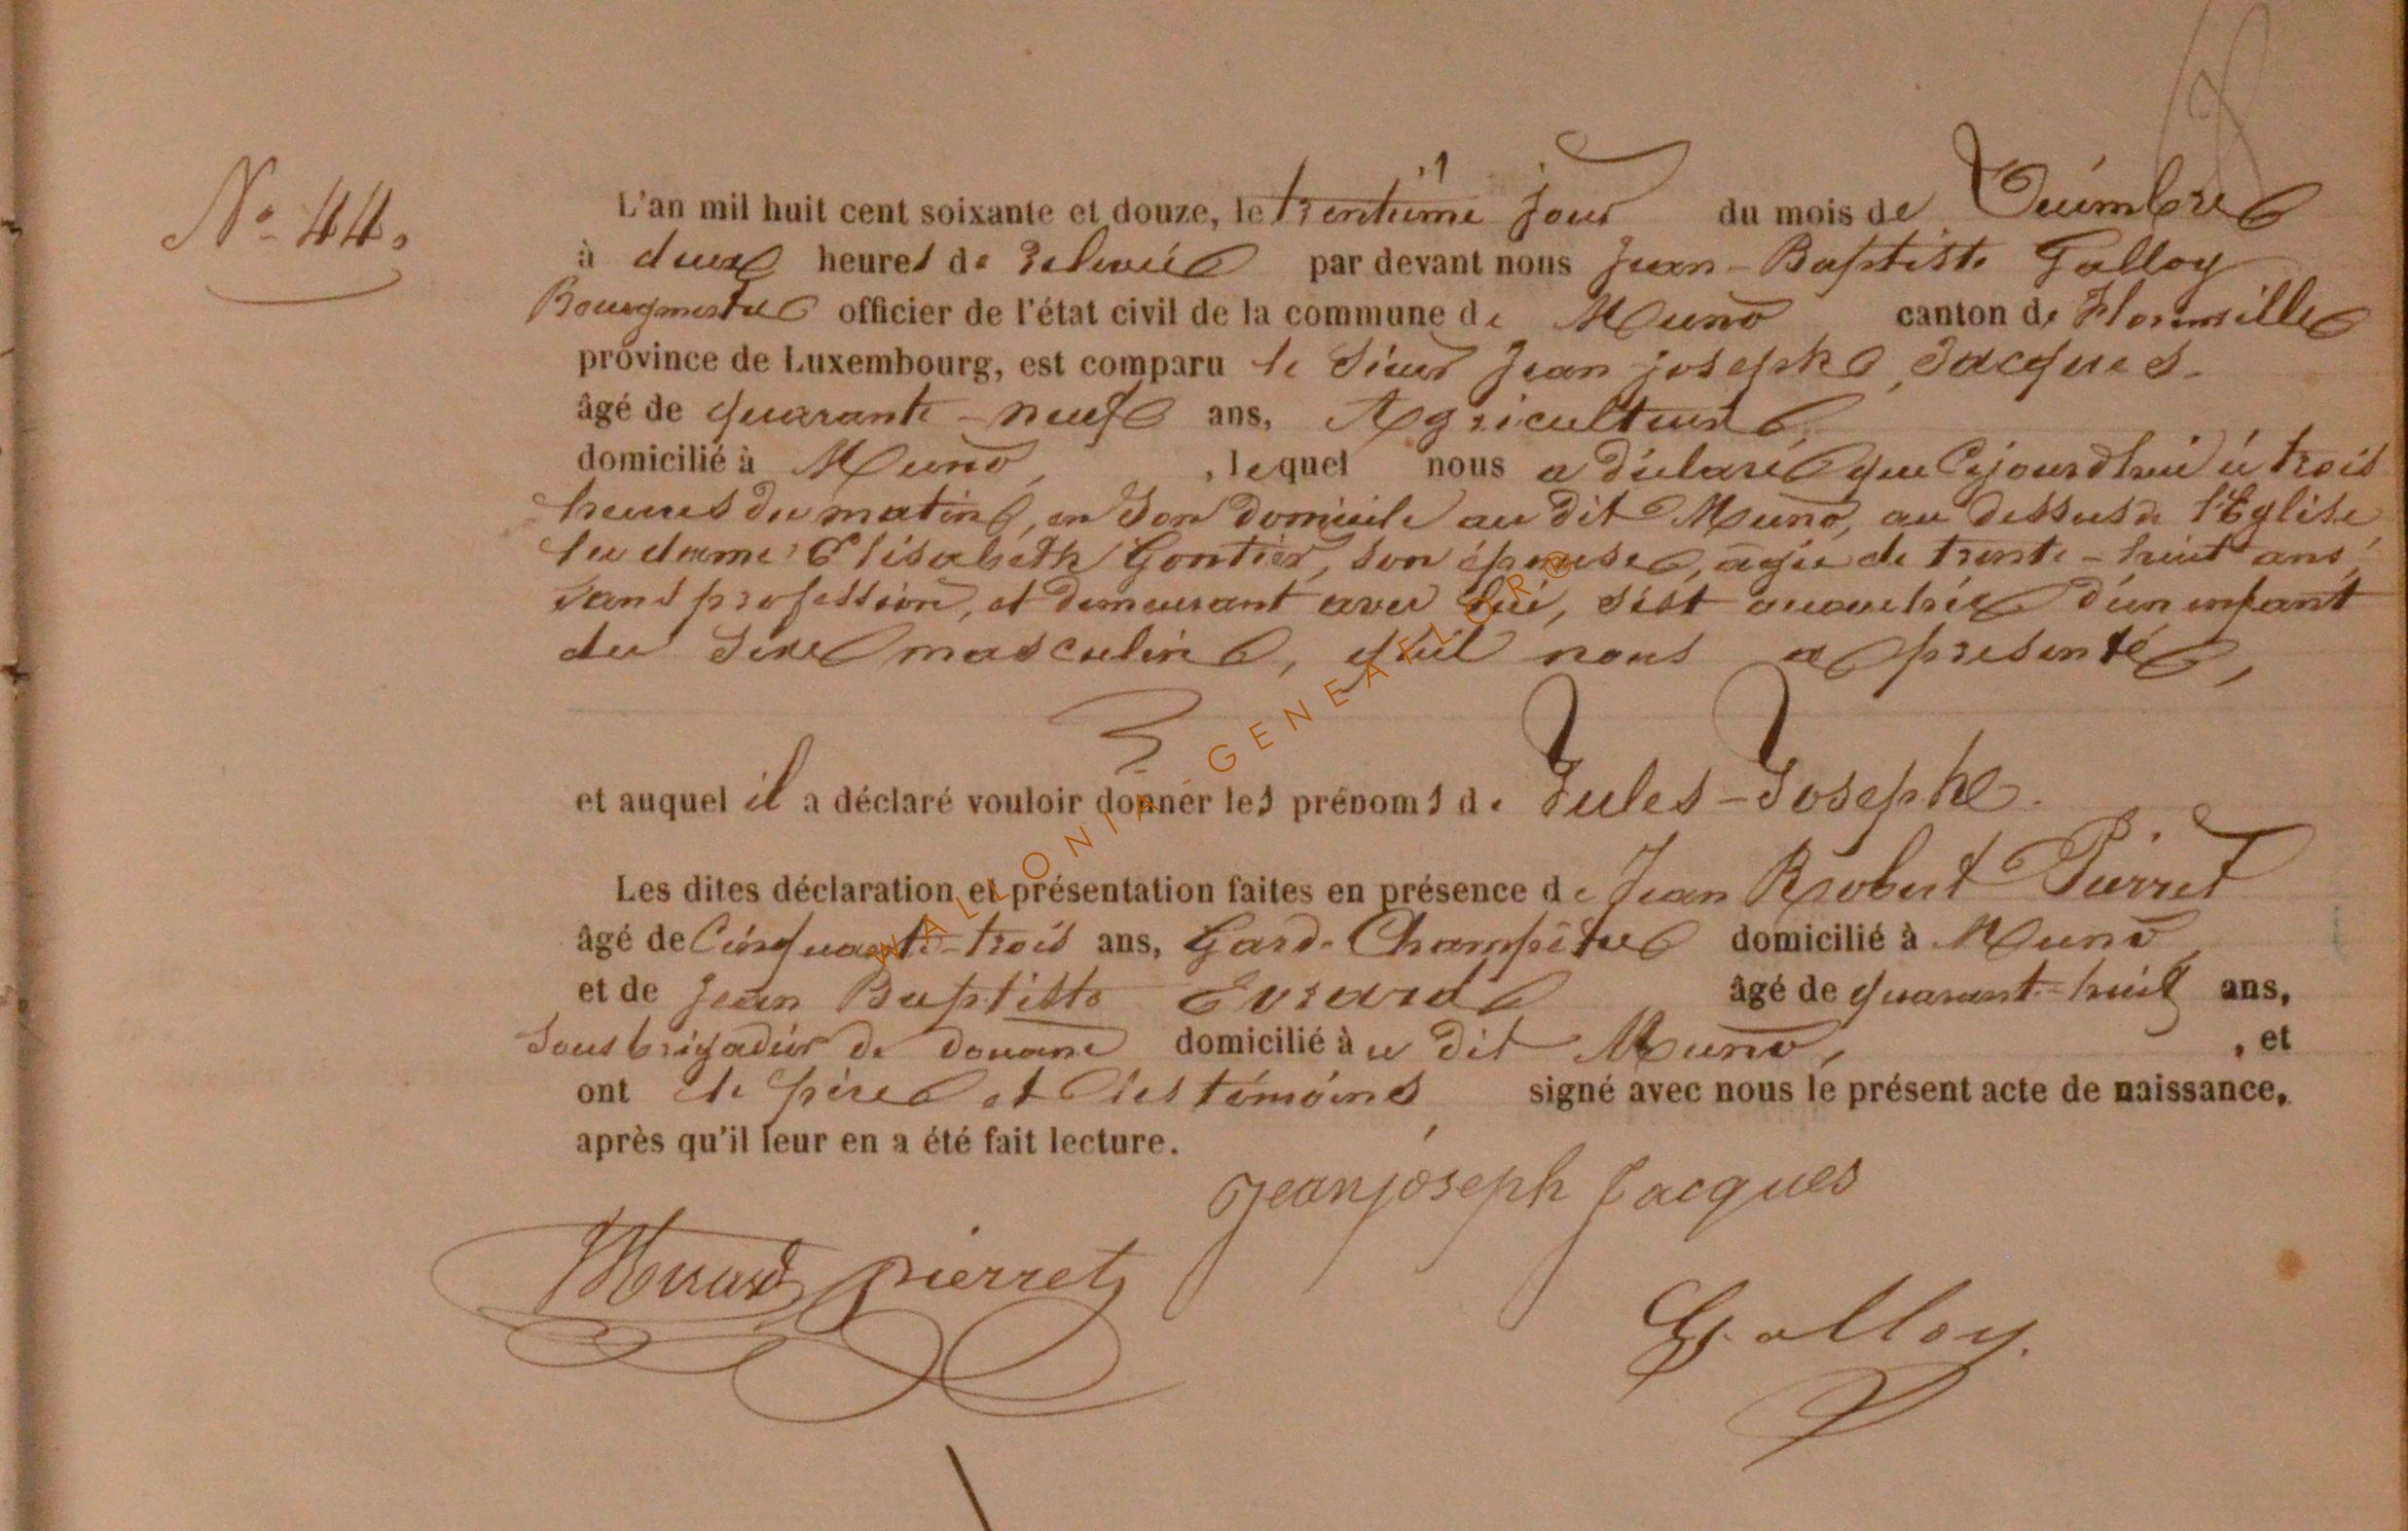 N° 44.
L'an mil huit cent soixante et douze, le trentième jour du mois de Décembre
à deux heures de relevée par devant nous Jean-Baptiste Galloy
Bourgmestre officier de l'état civil de la commune de Muno canton de Florenville
province de Luxembourg, est comparu le Sieur Jean joseph Jacques.
âgé de quarante-neuf ans, Agriculteur,
domicilié à Muno, , lequel nous a déclaré que Cejourdhui à trois
heures du matin, en Son Domicile au dit Muno, au dessus de l'Eglise
la dame Elisabeth Gontier, son épouse, agée de trente-huit ans,
sans profession, et demeurant avec lui, s'est accouchée d'un enfant
du Sexe masculin, qu'il nous a présenté,
et auquel il a déclaré vouloir donner les prénoms de Jules-Joseph.
Les dites déclaration et présentation faites en présence de Jean Robert Pierret
âgé de Cinquante-trois ans, Garde Champêtre domicilié à Muno,
et de Jean Baptiste Evrard âgé de quarante-huit ans,
Sous brigadier de douane domicilié à u dit Muno, , et
ont le père et les témoins, signé avec nous le présent acte de naissance,
après qu'il leur en a été fait lecture.
Jeanjoseph Jacques
pierret
Galloy.
WALLONIA-GENEAFLOR®